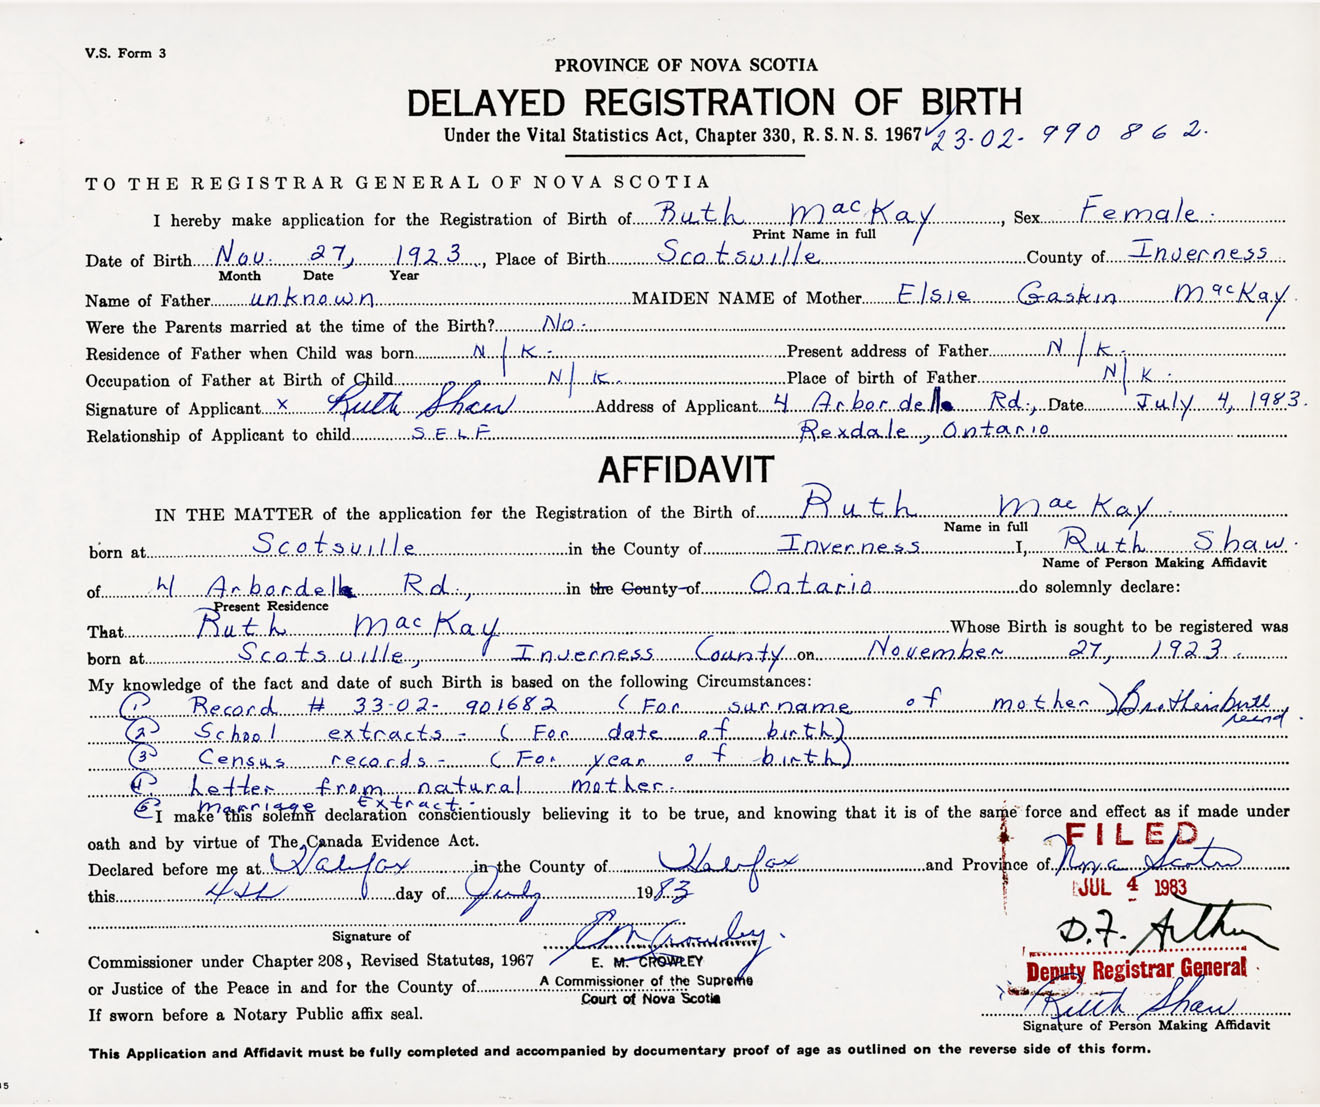 V.S. Form 3
PROVINCE OF NOVA SCOTIA
DELAYED REGISTRATION OF BIRTH
Under the Vital Statistics Act, Chapter 330, R. S. N. S. 1967 23-02-990862.
TO THE REGISTRAR GENERAL OF NOVA SCOTIA
I hereby make application for the Registration of Birth of Ruth MacKay, Sex Female.
Print Name in full
Date of Birth Nov. 27, 1923, Place of Birth Scotsville County of Inverness
Month Date Year
Name of Father unknown MAIDEN NAME of Mother Elsie Gaskin MacKay
Were the Parents married at the time of the Birth? No.
Residence of Father when Child was born N/K. Present address of Father N/K.
Occupation of Father at Birth of Child N/K. Place of birth of Father N/K.
Signature of Applicant x Ruth Shaw Address of Applicant 4 Arbordell Rd., Date July 4, 1983.
Relationship of Applicant to child SELF Rexdale, Ontario
AFFIDAVIT
IN THE MATTER of the application for the Registration of the Birth of Ruth MacKay
Name in full
born at Scotsville in the County of Inverness I, Ruth Shaw.
Name of Person Making Affidavit
of 4 Arbordell Rd., in the County of Ontario do solemnly declare:
Present Residence
That Ruth MacKay Whose Birth is sought to be registered was
born at Scotsville, Inverness County on November 27, 1923.
My knowledge of the fact and date of such Birth is based on the following Circumstances:
(1) Record # 33-02-901682 (For surname of mother) Brother's birth record.
(2) School extracts - (For date of birth)
(3) Census records - (For year of birth)
(4) Letter from natural mother.
(5) marriage extract.
I make this solemn declaration conscientiously believing it to be true, and knowing that it is of the same force and effect as if made under
oath and by virtue of The Canada Evidence Act.
FILED
Declared before me at Halifax in the County of Halifax and Province of Nova Scotia
this 4th day of July 1983
JUL 4 1983
D.F. Arthur
Signature of E M Crowley
Commissioner under Chapter 208, Revised Statutes, 1967 E. M. CROWLEY
Deputy Registrar General
or Justice of the Peace in and for the County of A Commissioner of the Supreme
Court of Nova Scotia
Ruth Shaw
If sworn before a Notary Public affix seal.
Signature of Person Making Affidavit
This Application and Affidavit must be fully completed and accompanied by documentary proof of age as outlined on the reverse side of this form.